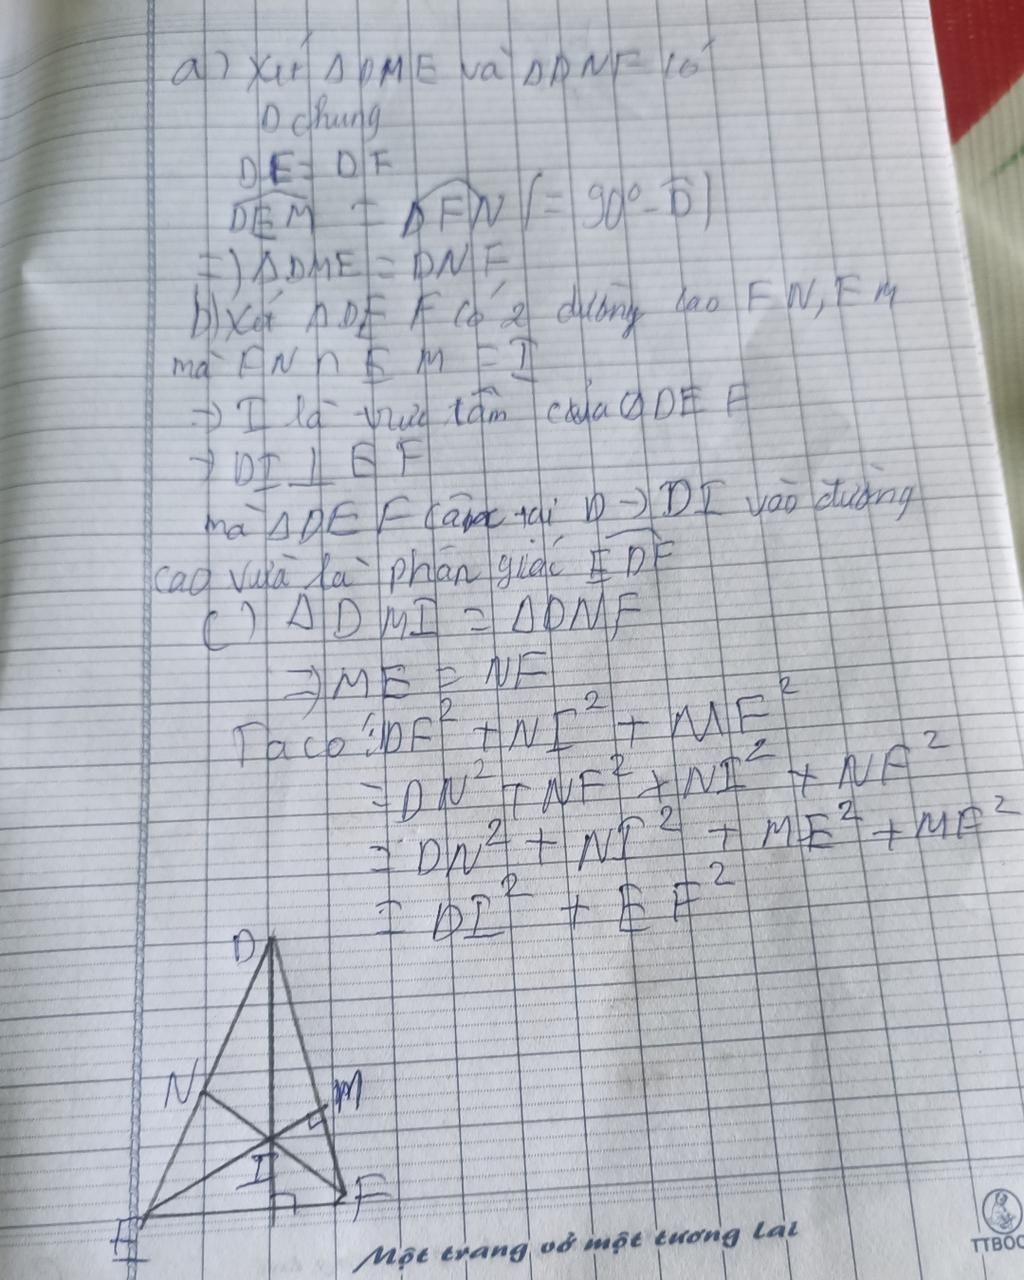 a) Xét ΔDME và ΔDNF có
D chung
DE = DF
DEM = DFN (= 90° - D)
=> ΔDME = DNF
b) Xét ΔDEF có 2 đường cao FN, EM
mà FN ∩ EM = I
→ I là trực tâm của ΔDEF
→ DI ⊥ EF
mà ΔDEF cân tại D → DI vào đường
cao vừa là phân giác EDF
c) ΔDMI = ΔDNF
=> ME = NF
Ta có: DF² + NI² + MF²
= DN² + NF² + NI² + NF²
= DN² + NI² + ME² + MF²
= DI² + EF²
D
N
M
I
F
E
Một trang vở một tương lai
TTBOO